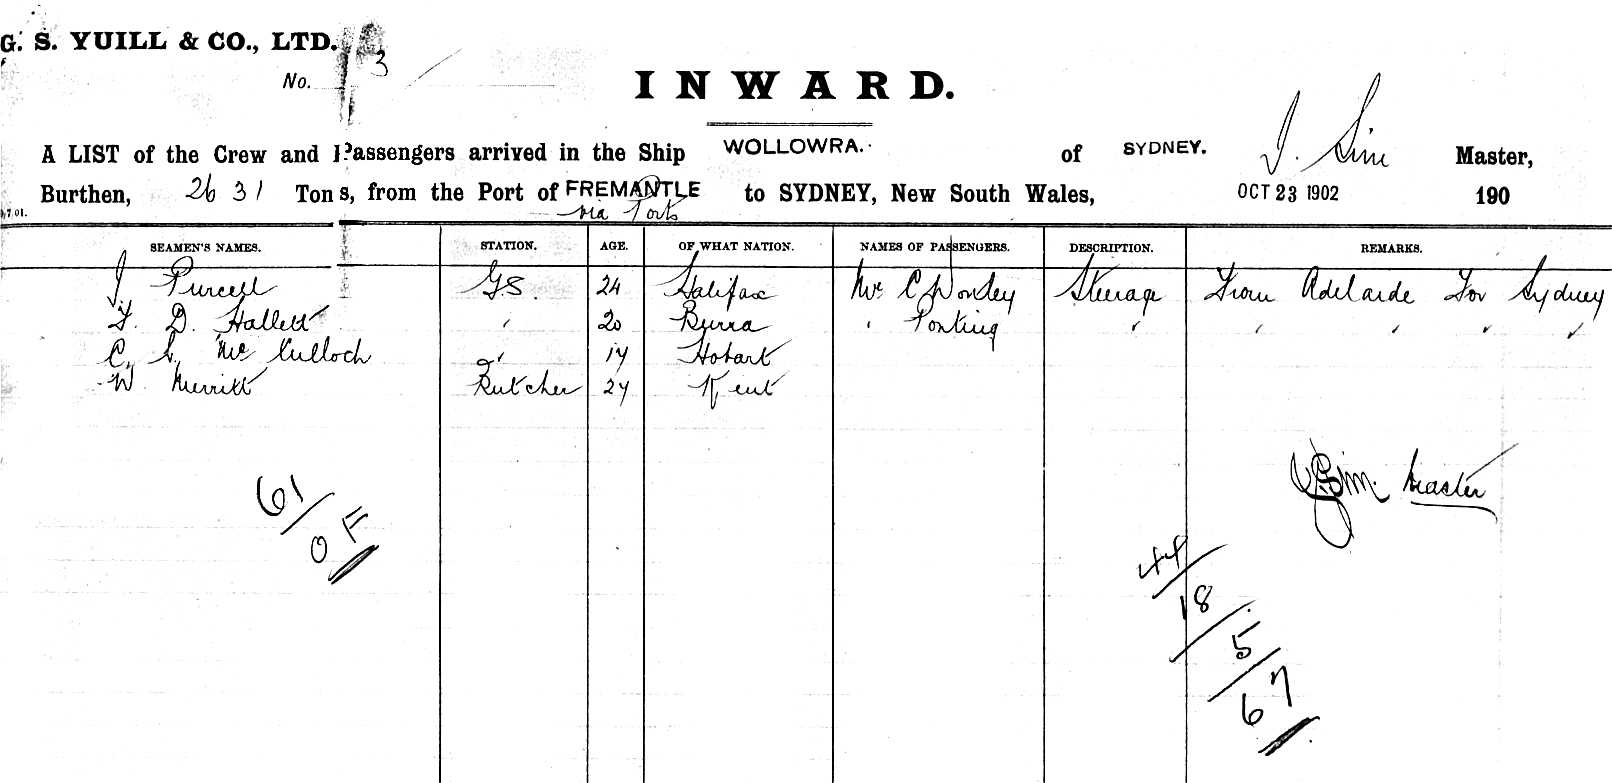 G. S. YUILL & CO., LTD.
No. 3
INWARD.
A LIST of the Crew and Passengers arrived in the Ship WOLLOWRA. of SYDNEY. J. Sim Master,
Burthen, 2631 Tons, from the Port of FREMANTLE to SYDNEY, New South Wales, OCT 23 1902 190
via Ports
7.01.
SEAMEN'S NAMES. STATION. AGE. OF WHAT NATION. NAMES OF PASSENGERS. DESCRIPTION. REMARKS.
J Purcell G.S. 24 Halifax Mr C Worley Steerage From Adelaide For Sydney
F. D. Hallett " 20 Burra " Ponting " " " " "
C. S. Mc Culloch " 17 Hobart
W. Merritt Butcher 27 Kent
J Sim. Master
61/0 F
44/18/5/67